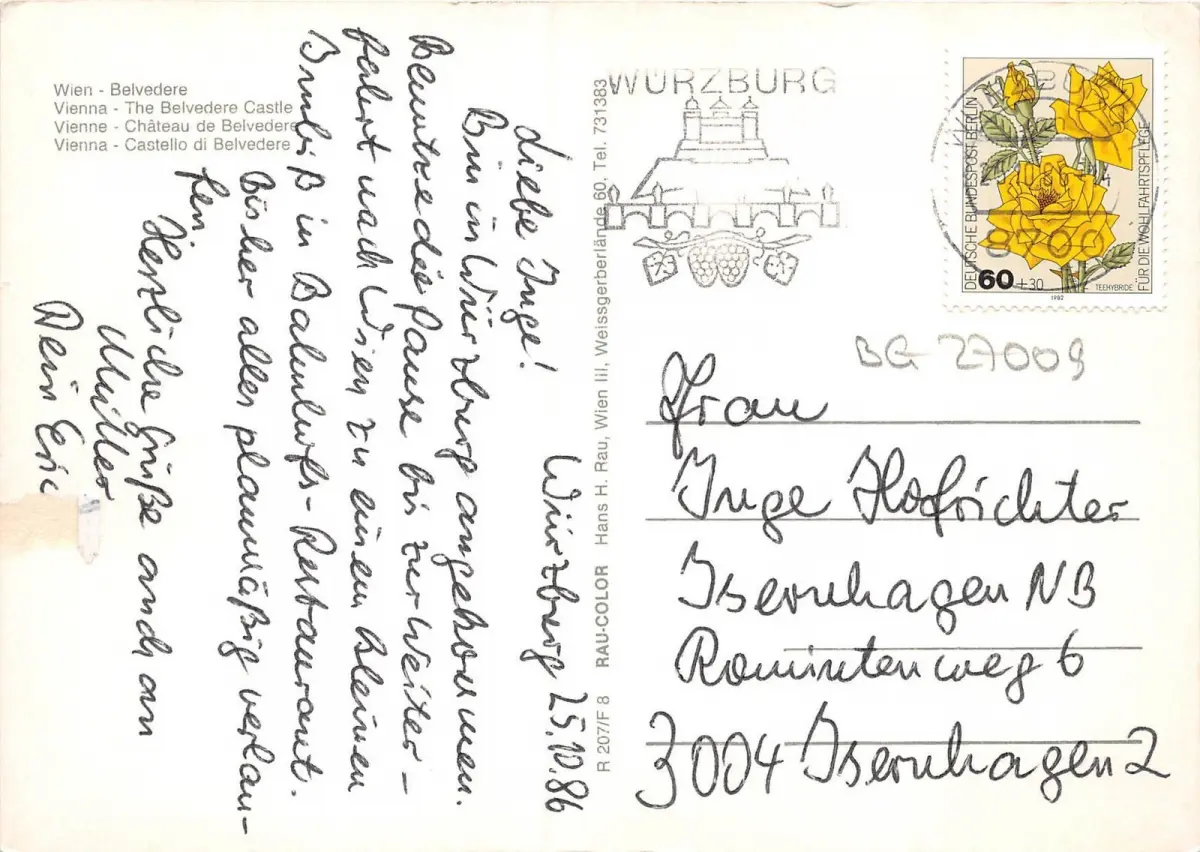 Wien - Belvedere
Vienna - The Belvedere Castle
Vienne - Château de Belvedere
Vienna - Castello di Belvedere
Würzburg 25.10.86
Liebe Inge!
Bin in Würzburg angekommen.
Benutze die Pause bis zur Weiter-
fahrt nach Wien zu einem kleinen
Imbiß in Bahnhofs-Restaurant.
Bisher alles planmäßig verlau-
fen.
Herzliche Grüße auch an
Mutter
Dein Eric
R 207/F 8 RAU-COLOR Hans H. Rau, Wien III, Weissgerberlände 60, Tel. 731383
WÜRZBURG
8700
DEUTSCHE BUNDESPOST BERLIN
FÜR DIE WOHLFAHRTSPFLEGE
60 +30
TEEHYBRIDE
1982
BG 27009
Frau
Inge Hofrichter
Isernhagen NB
Romintenweg 6
3004 Isernhagen 2